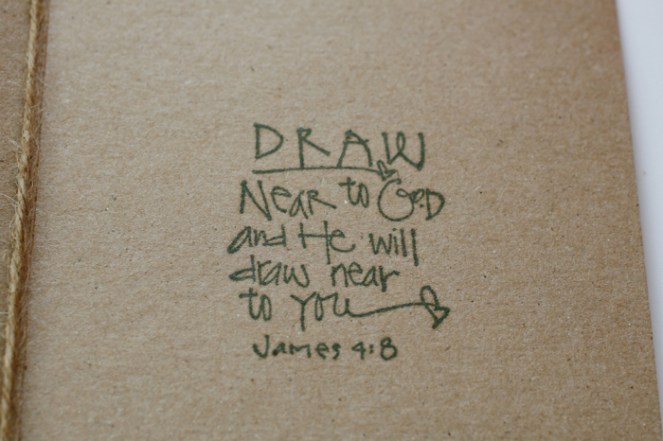 DRAW
NeaR to GoD
and He will
draw near
to you
James 4:8